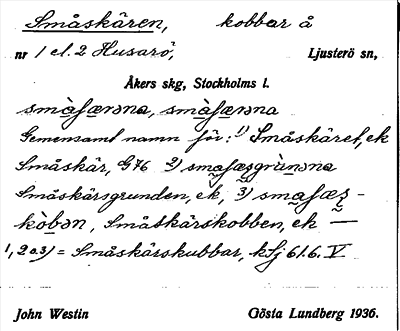 Småskären, kobbar å
nr 1 el. 2 Husarö, Ljusterö sn,
Åkers skg, Stockholms l.
Gemensamt namn för: 1) Småskäret, ek
Småskär, G76 2)
Småskärsgrunden, ek, 3)
Småskärskobben, ek —
1, 2 o. 3) = Småskärskubbar, kSj 61.6. V
John Westin Gösta Lundberg 1936.